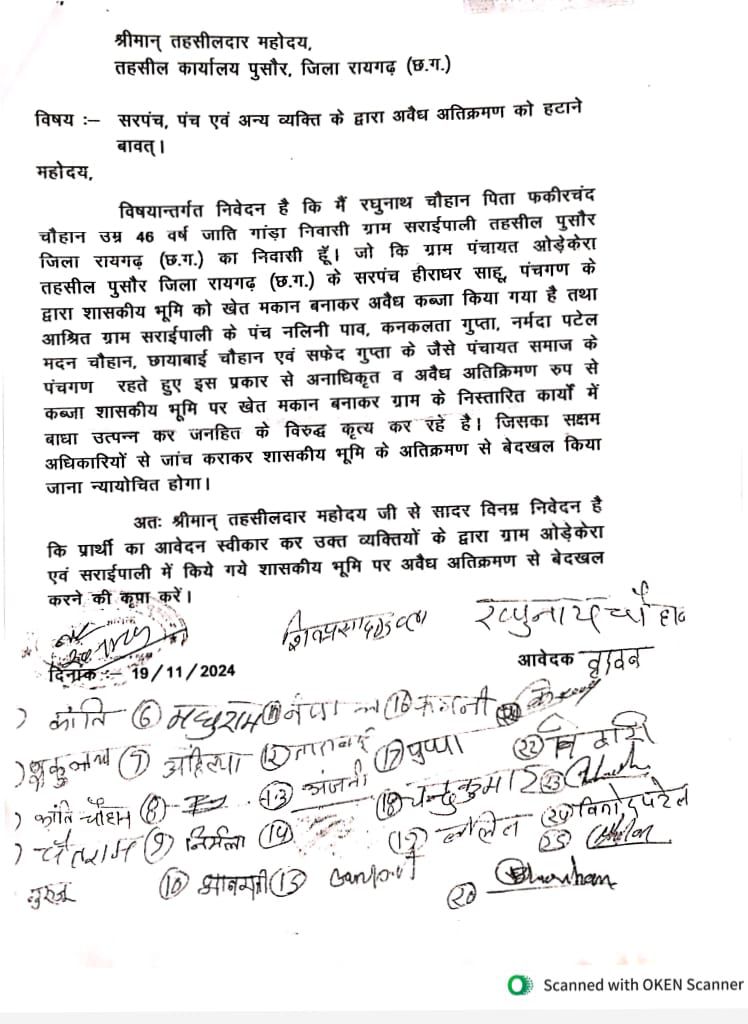 श्रीमान् तहसीलदार महोदय,
तहसील कार्यालय पुसौर, जिला रायगढ़ (छ.ग.)
विषय :– सरपंच, पंच एवं अन्य व्यक्ति के द्वारा अवैध अतिक्रमण को हटाने
बावत्।
महोदय,
विषयान्तर्गत निवेदन है कि मैं रघुनाथ चौहान पिता फकीरचंद
चौहान उम्र 46 वर्ष जाति गांड़ा निवासी ग्राम सराईपाली तहसील पुसौर
जिला रायगढ़ (छ.ग.) का निवासी हूँ। जो कि ग्राम पंचायत ओड़ेकेरा
तहसील पुसौर जिला रायगढ़ (छ.ग.) के सरपंच हीराधर साहू, पंचगण के
द्वारा शासकीय भूमि को खेत मकान बनाकर अवैध कब्जा किया गया है तथा
आश्रित ग्राम सराईपाली के पंच नलिनी पाव, कनकलता गुप्ता, नर्मदा पटेल
मदन चौहान, छायाबाई चौहान एवं सफेद गुप्ता के जैसे पंचायत समाज के
पंचगण रहते हुए इस प्रकार से अनाधिकृत व अवैध अतिक्रिमण रुप से
कब्जा शासकीय भूमि पर खेत मकान बनाकर ग्राम के निस्तारित कार्यों में
बाधा उत्पन्न कर जनहित के विरुद्ध कृत्य कर रहे है। जिसका सक्षम
अधिकारियों से जांच कराकर शासकीय भूमि के अतिक्रमण से बेदखल किया
जाना न्यायोचित होगा।
अतः श्रीमान् तहसीलदार महोदय जी से सादर विनम्र निवेदन है
कि प्रार्थी का आवेदन स्वीकार कर उक्त व्यक्तियों के द्वारा ग्राम ओड़ेकेरा
एवं सराईपाली में किये गये शासकीय भूमि पर अवैध अतिक्रमण से बेदखल
करने की कृपा करें।
रघुनाथ चौहान
दिनांक :– 19/11/2024
आवेदक
कांति ⑥ मधुराम ⑯
⑦ अहिल्या ⑫ ⑰ पुष्पा ㉒
कांति चौहान ⑧ ⑬ अंजनी ⑱ चन्द्रकुमार ㉓
चैतराम ⑨ निर्मला ⑭ ⑲ ललित ㉔ विनोद पटेल
⑩ ⑮ ㉕
⑳ Chauhan
Scanned with OKEN Scanner